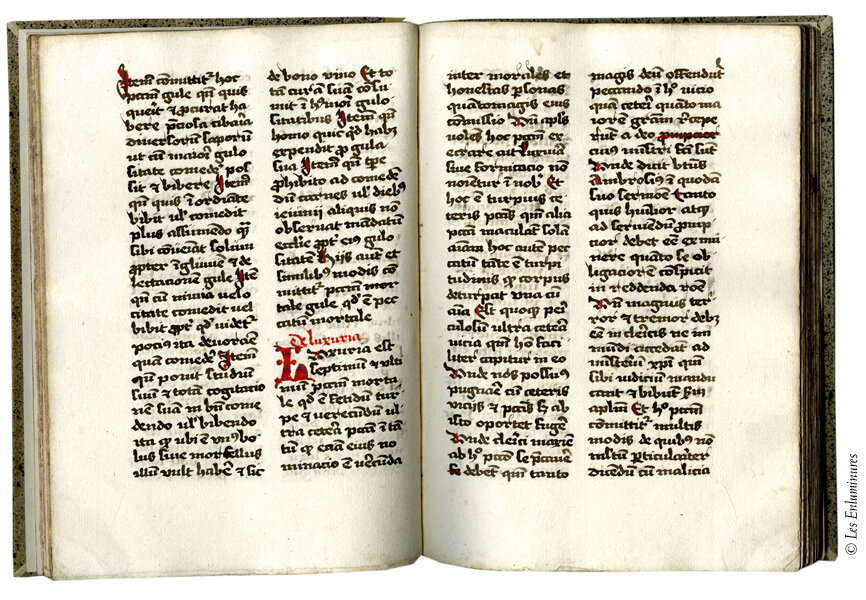 Item comittit hoc
pctm gule qn quis
querit & procurat ha
bere preciosa cibaria
diversorum saporum
ut cum maiori gulo
sitate comede pos
sit & bibere Item
qn quis inordinate
bibit vel comedit
plus assumendo qm
sibi conveniat solum
propter ingluviem & de
lectationem gule Item
qn cum nimia velo
citate comedit vel
bibit propter quod videtur
pocius ita devorare
quam comede Item
qn ponit studium
suum & totam cogitacio
nem suam in bn come
dendo vel bibendo
ita quod ubi est unus bo
lus sive morsellus
illum vult habere & sic
de bono vino Et to
tam curam suam consu
mit in huiusmodi gulo
sitatibus Item qn
homo quicquid habet
expendit pro gula
sua Item qn tempore
prohibito ad comeden
dum carnes vel diebus
ieiunii aliquis non
observat mandatum
ecclesie propter eius gulo
sitatem Hiis autem et
similibus modis co
mittitur pctm mor
tale gule quod est pec
catum mortale
De luxuria
Luxuria est
septimum & ulti
mum pctm morta
le quod est fetidum tur
pe & verecundum ul
tra cetera pctam in tan
tum quod eciam eius no
minacio est verecunda
inter morales et
honestas personas
quantomagis eius
comissio Unde apls
volens hoc pctm ex
ecrare ait luxuria
sive fornicatio non
nominetur in vobis Et
hoc est turpius ce
teris pctis quia alia
pctam maculant solam
animam hoc autem pec
catum tante est turpi
tudinis quod corpus
deturpat una cum
anima Est quoque peri
culosum ultra cetera
vicia quia homo faci
liter capitur in eo
Unde nos possumus
pugnare cum ceteris
viciis & pctis sed ab
isto oportet fugere
Unde clerici maxime
ab hoc pctm se precavere
debent quia tanto
magis deum offendunt
peccando in hoc vicio
quam ceteri quanto ma
iorem gratiam recepe
runt a deo
cuius ministri facti sunt
Unde dicit beatus
Ambrosius in quodam
suo sermone Tanto
quis humilior atque
ad serviendum promp
cior debet esse ex mu
nere quanto se ob
ligaciorem conspicit
in reddenda racione
Unde magnus ter
ror & tremor debet
esse in clericis ne im
mundi accedant ad
misterium xpi quia
sibi iudicium mandu
cant & bibunt secundum
aplm Et hoc pctm
comittitur multis
modis de quibus non
est multum particulariter
dicendum cum malicia
© Les Enluminures